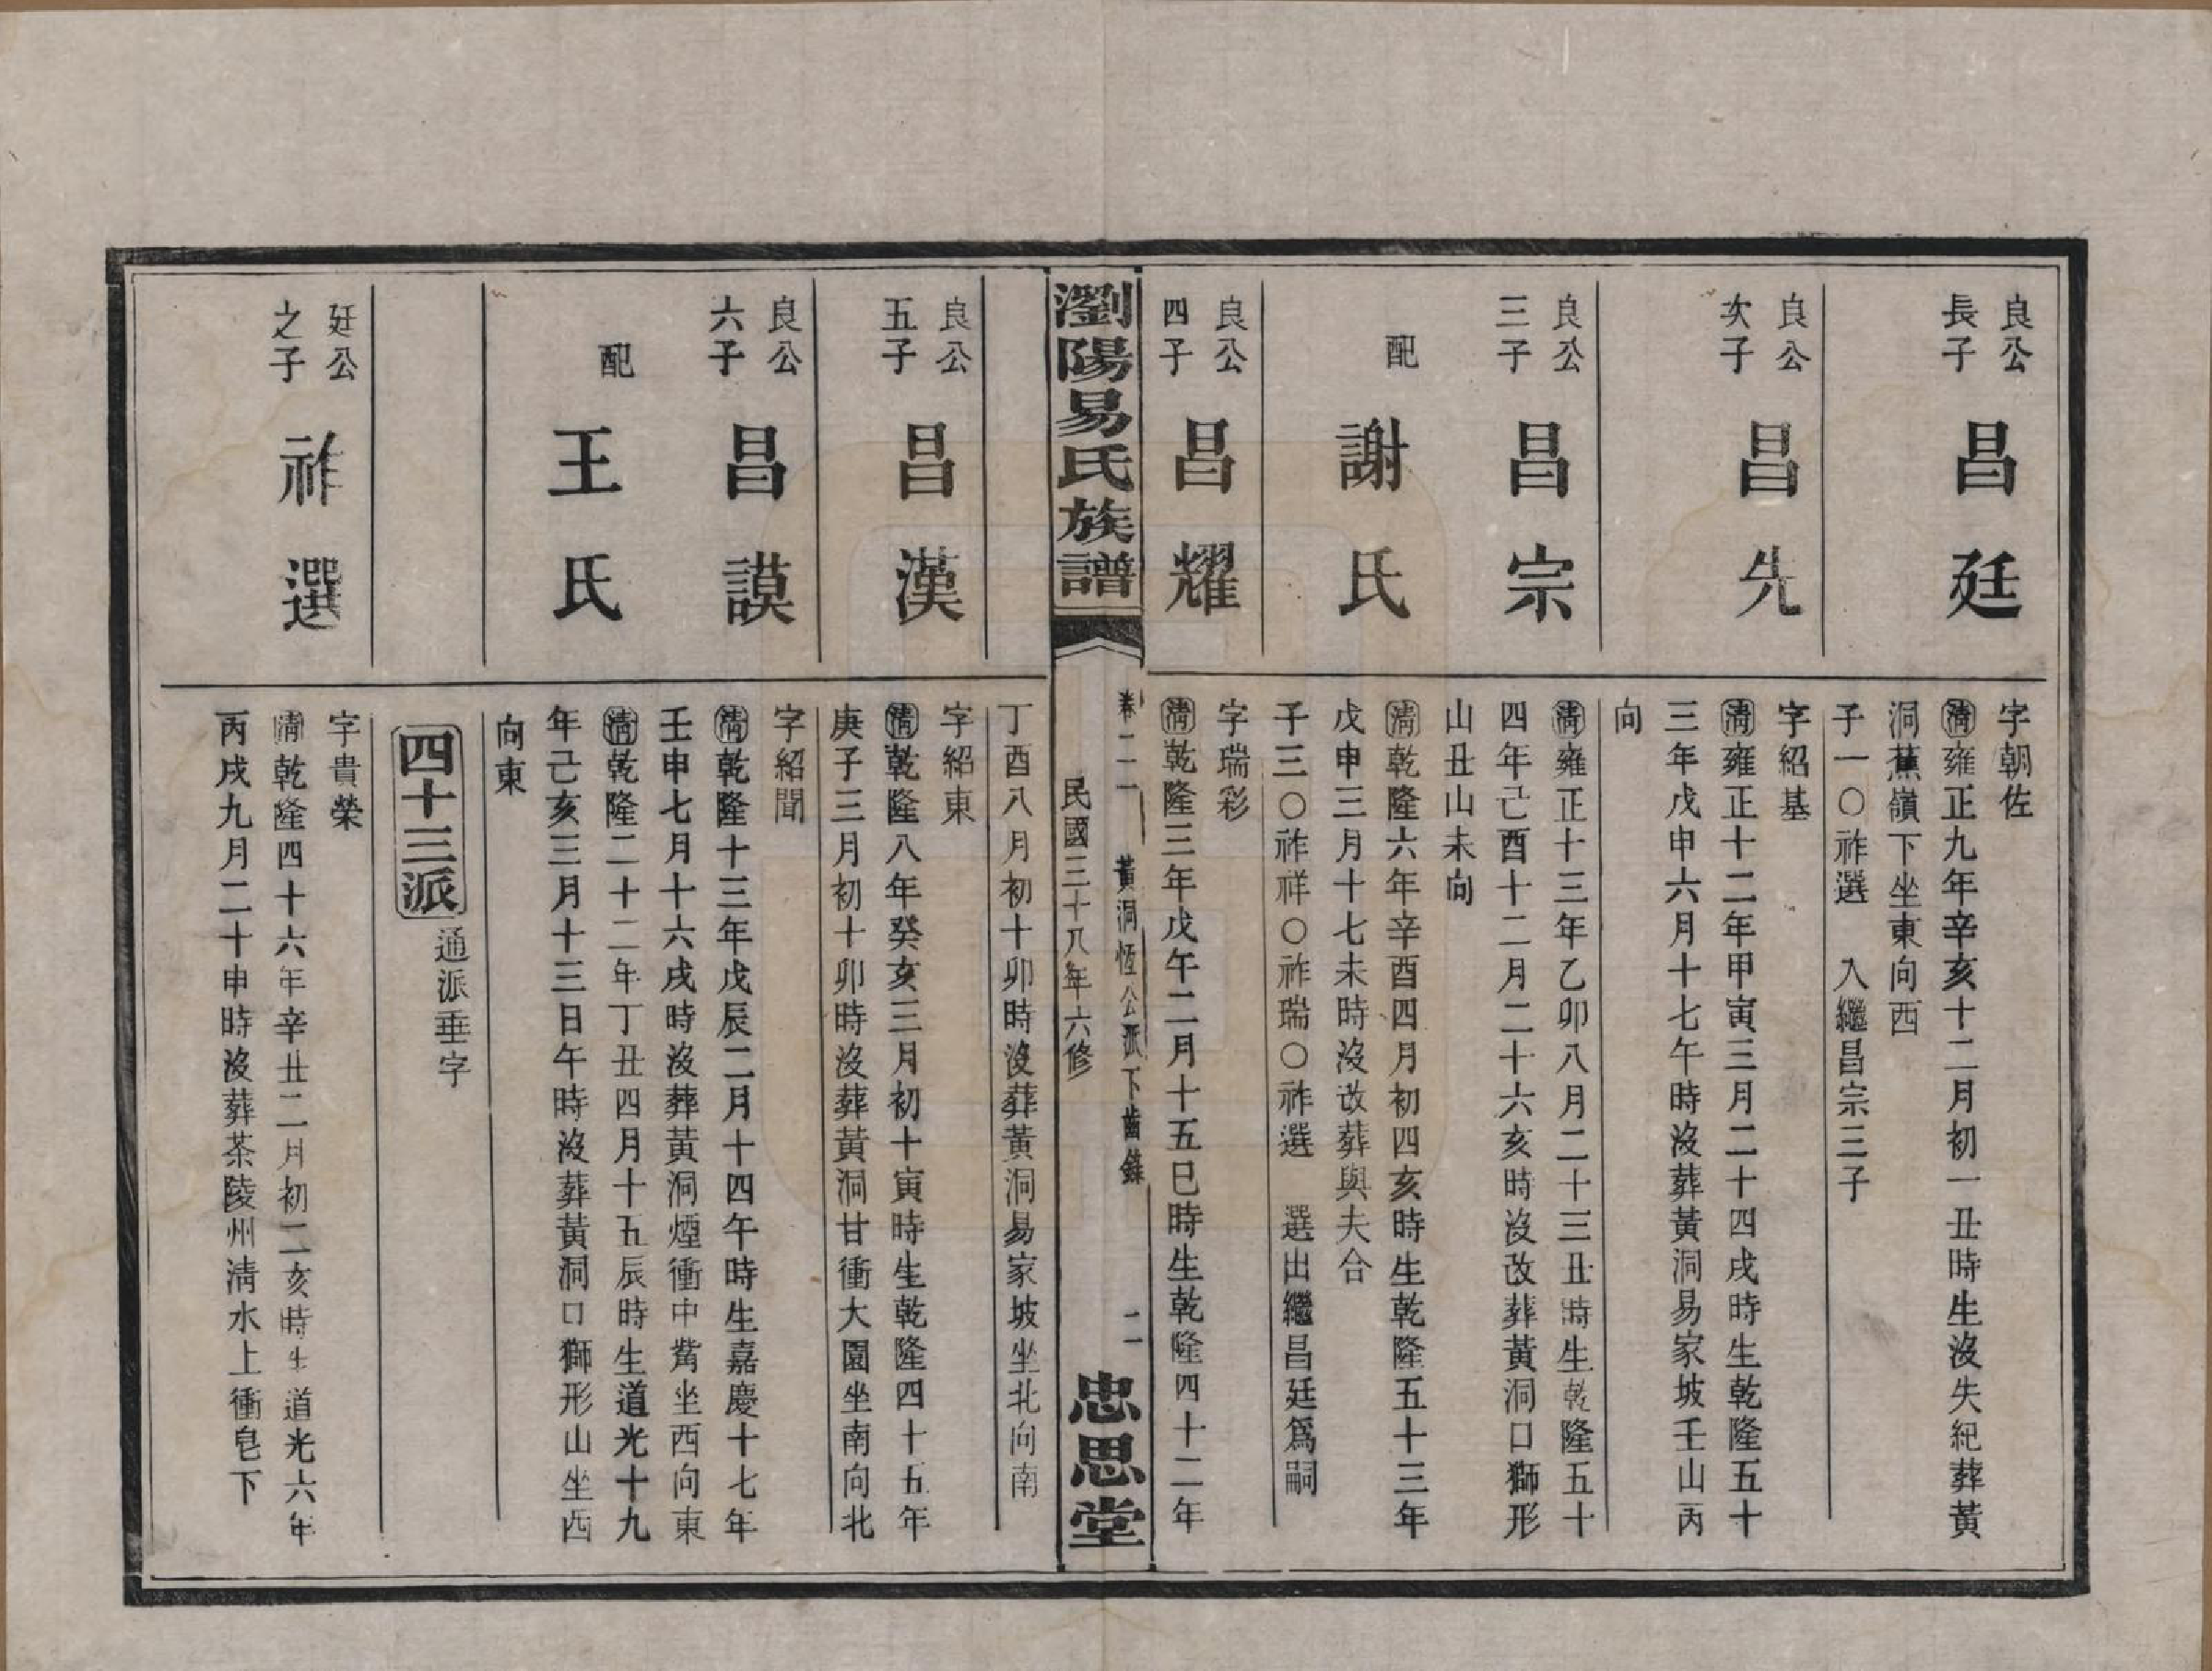 良公
長子
昌廷
字朝佐
清雍正九年辛亥十二月初一丑時生沒失紀葬黃
洞蕉嶺下坐東向西
子一〇祚選 入繼昌宗三子
良公
次子
昌先
字紹基
清雍正十二年甲寅三月二十四戌時生乾隆五十
三年戊申六月十七午時沒葬黃洞易家坡壬山丙
向
良公
三子
昌宗
清雍正十三年乙卯八月二十三丑時生乾隆五十
四年己酉十二月二十六亥時沒改葬黃洞口獅形
山丑山未向
配
謝氏
清乾隆六年辛酉四月初四亥時生乾隆五十三年
戊申三月十七未時沒改葬與夫合
子三〇祚祥〇祚瑞〇祚選 選出繼昌廷爲嗣
良公
四子
昌耀
字瑞彩
清乾隆三年戊午二月十五巳時生乾隆四十二年
瀏陽易氏族譜
卷二一 黃洞恆公派下齒錄 二
民國三十八年六修
忠思堂
丁酉八月初十卯時沒葬黃洞易家坡坐北向南
良公
五子
昌漢
字紹東
清乾隆八年癸亥三月初十寅時生乾隆四十五年
庚子三月初十卯時沒葬黃洞甘衝大園坐南向北
良公
六子
昌謨
字紹聞
清乾隆十三年戊辰二月十四午時生嘉慶十七年
壬申七月十六戌時沒葬黃洞煙衝中嘴坐西向東
配
王氏
清乾隆二十二年丁丑四月十五辰時生道光十九
年己亥三月十三日午時沒葬黃洞口獅形山坐西
向東
四十三派
通派垂字
廷公
之子
祚選
字貴榮
清乾隆四十六年辛丑二月初二亥時生道光六年
丙戌九月二十申時沒葬茶陵州清水上衝皂下